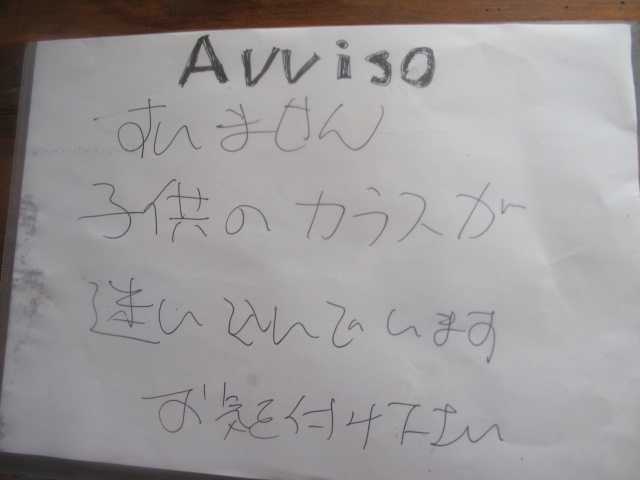 Avviso
すいません
子供のカラスが
迷い込んでいます
お気を付け下さい